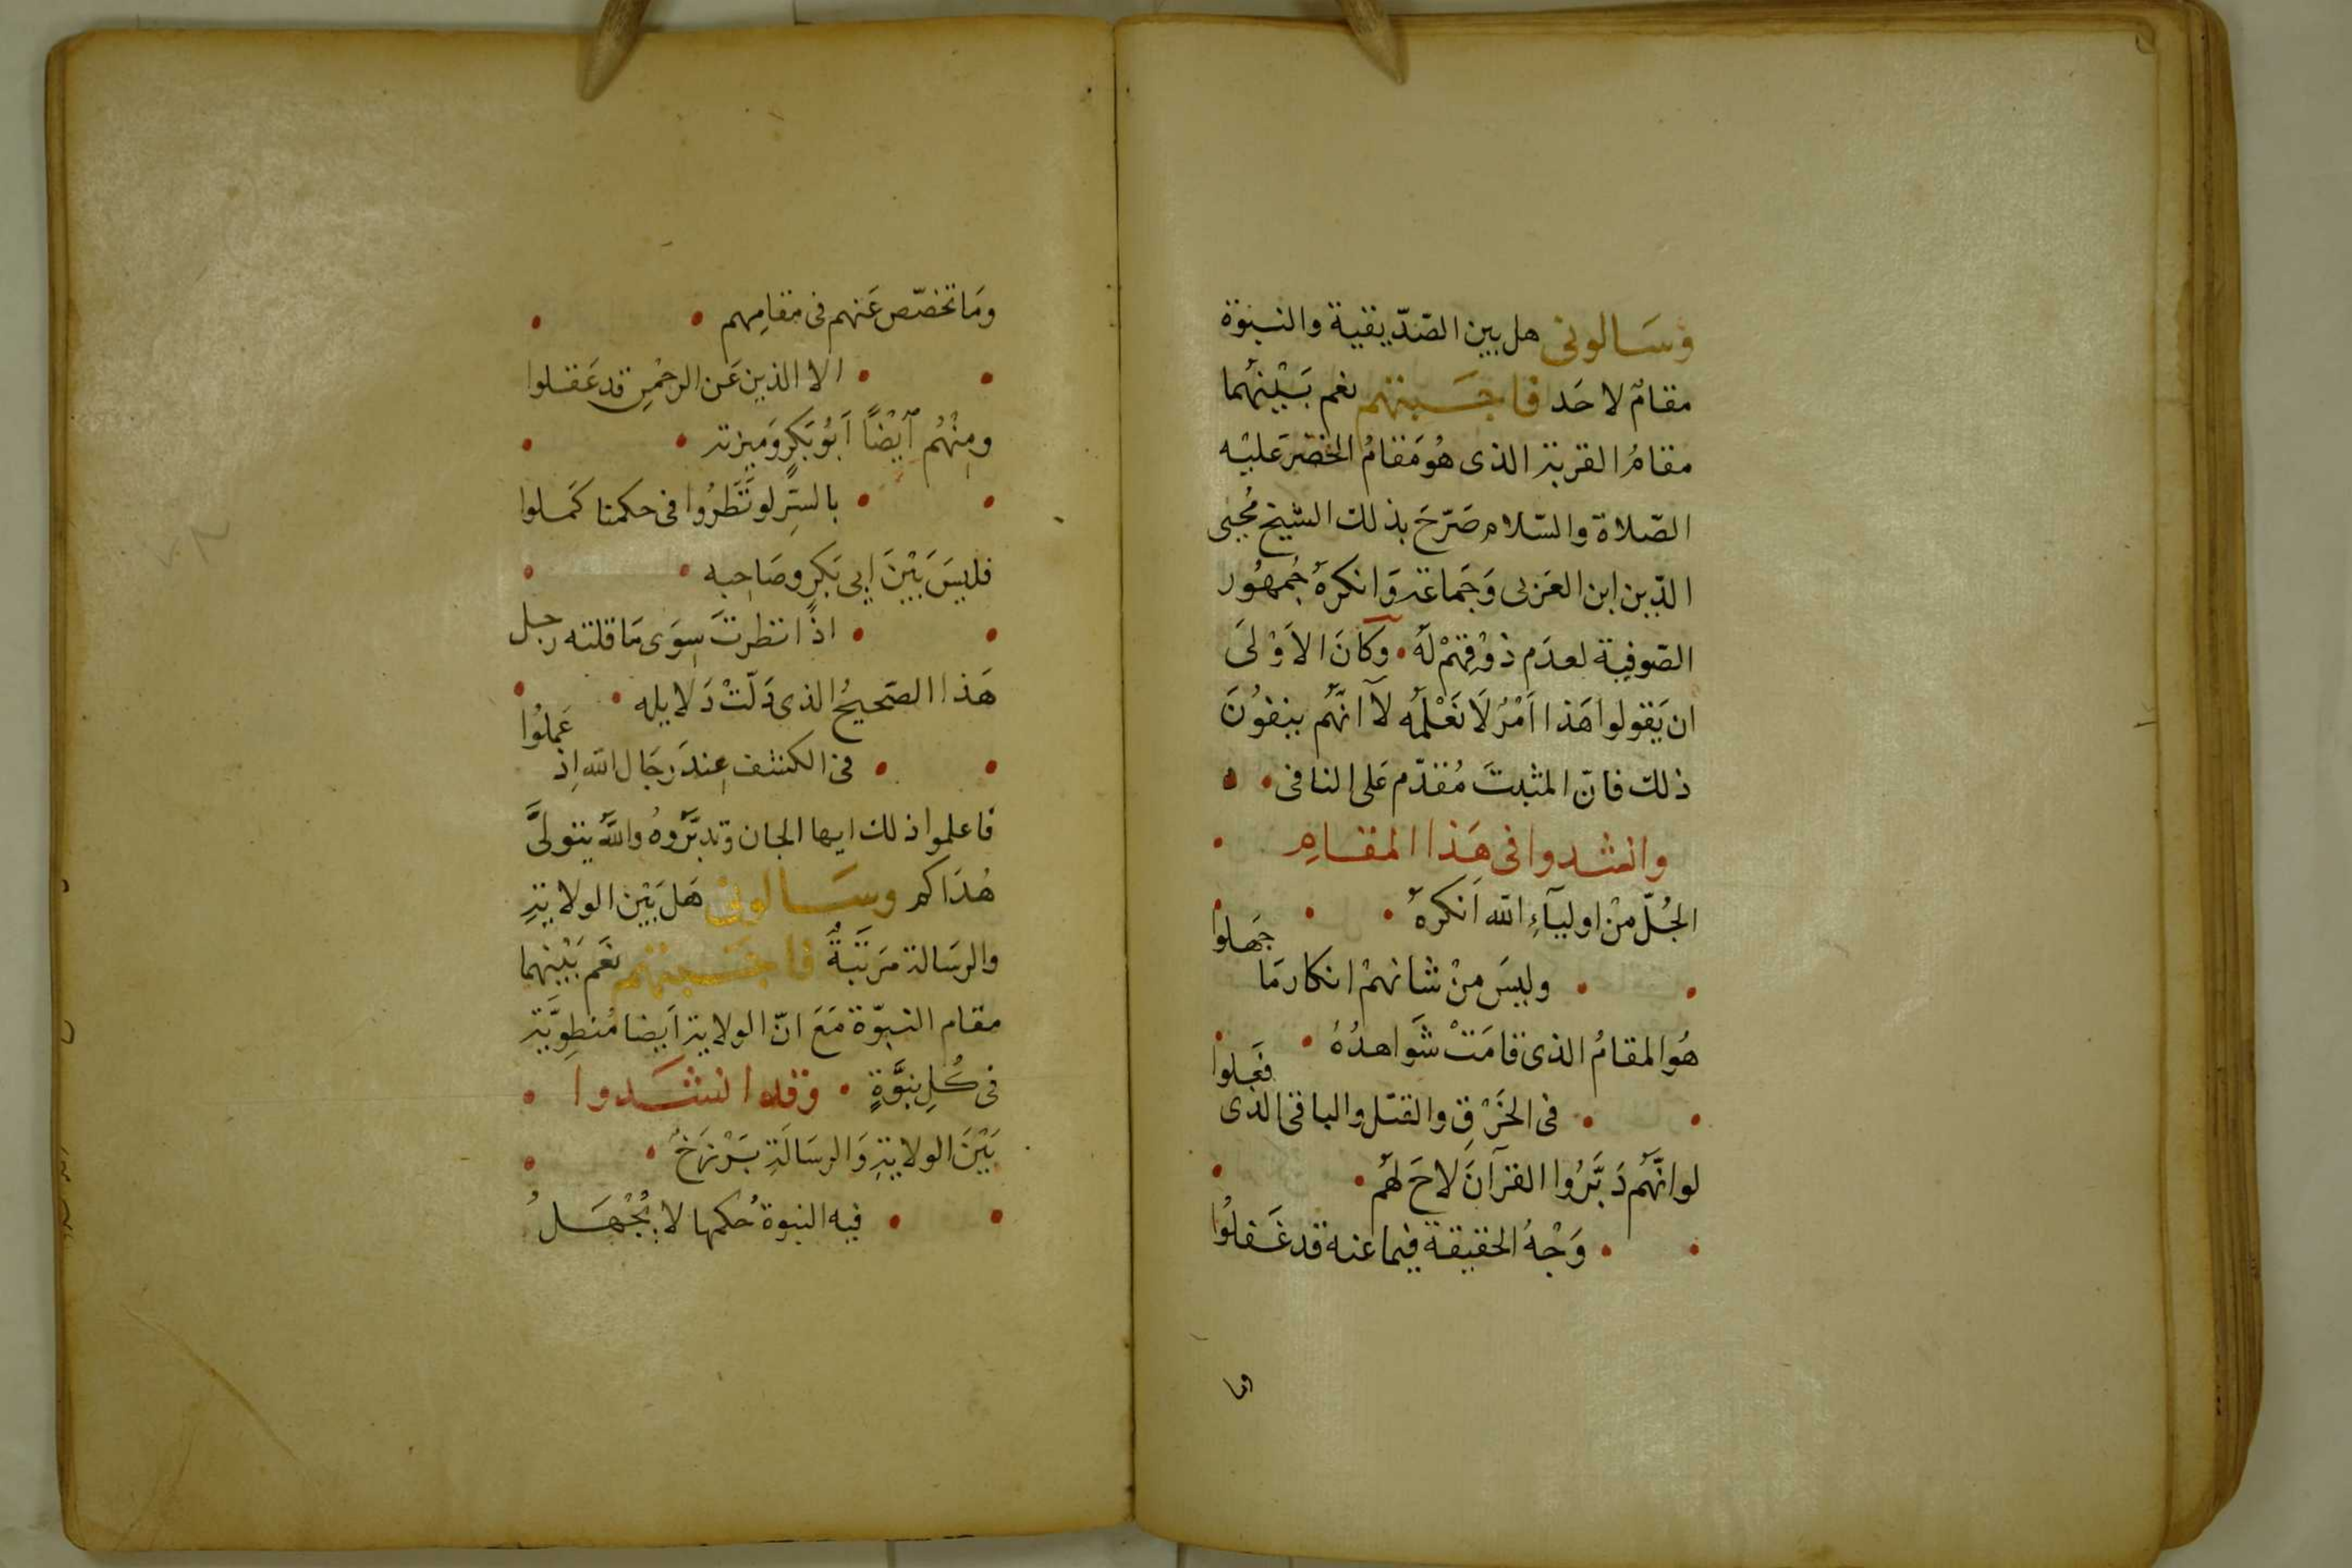 وسَالونى هل بين الصّدّيقية والنبوّة
مقامٌ لاحَد فاجَبتهم نعم بَيْنهُما
مقامُ القربة الذى هُو مَقامُ الخضَر عَليْه
الصّلاة والسّلام صَرّحَ بذلك الشيخ مُحيى
الدّين ابن العَربى وَجَماعَة وَانكرهُ جُمهُور
الصّوفيّة لعدَم ذوْقِهمْ لَهُ وكَانَ الأوْلَى
ان يَقولوا هَذا اَمْرٌ لَا نَعْلَمُه لَا انّهُم ينفوُنَ
ذلك فانّ المثبتَ مُقدّم عَلى النافى
وانشدوا فى هَذا المقَامِ
الجُلّ مِنْ اوليآءِ الله اَنكرهُ
وليسَ مِنْ شانهمْ انكار مَا جَهلوا
هُو المقامُ الذى قامَتْ شَواهدُهُ
فى الخَرْقِ والقتل والباقى الذى فعَلوا
لو انّهُم دَبّرُوا القرآنَ لاحَ لهُم
وَجْهُ الحقيقة فيما عنه قد غَفلُوا
وما
ومَا تخصّص عَنهم فى مقامِهم
الا الذين عَن الرحْمنِ قد عَقلوا
ومِنْهُم اَيْضًا اَبُو بَكرٍ وَميزته
بالسِّرِ لو نَظَرُوا فى حكمنا كَمَلوا
فليسَ بَيْنَ اَبى بَكرٍ وصَاحِبه
اذا نظرتَ سِوَى مَا قلته رجل
هَذا الصّحيحُ الذى دَلّتْ دَلايله
فى الكشف عِندَ رجَال الله اِذ عَملُوا
فاعلموا ذلك ايها الجان وتدبَّروهُ واللهُ يتولىَّ
هُدَاكم وسَالونى هَل بَيْن الولايةِ
والرسَالة مَرتَبةٌ فاجَبتهم نعَم بَيْنهما
مقام النبوّة مَعَ انّ الولاية اَيضا مُنطوِيَّة
فى كُلِ نبوَّةٍ وقد انشَدوا
بَيْنَ الولايةِ وَالرسَالَةِ بَرْزَخٌ
فيه النبوة حُكمها لا يُجْهَلُ